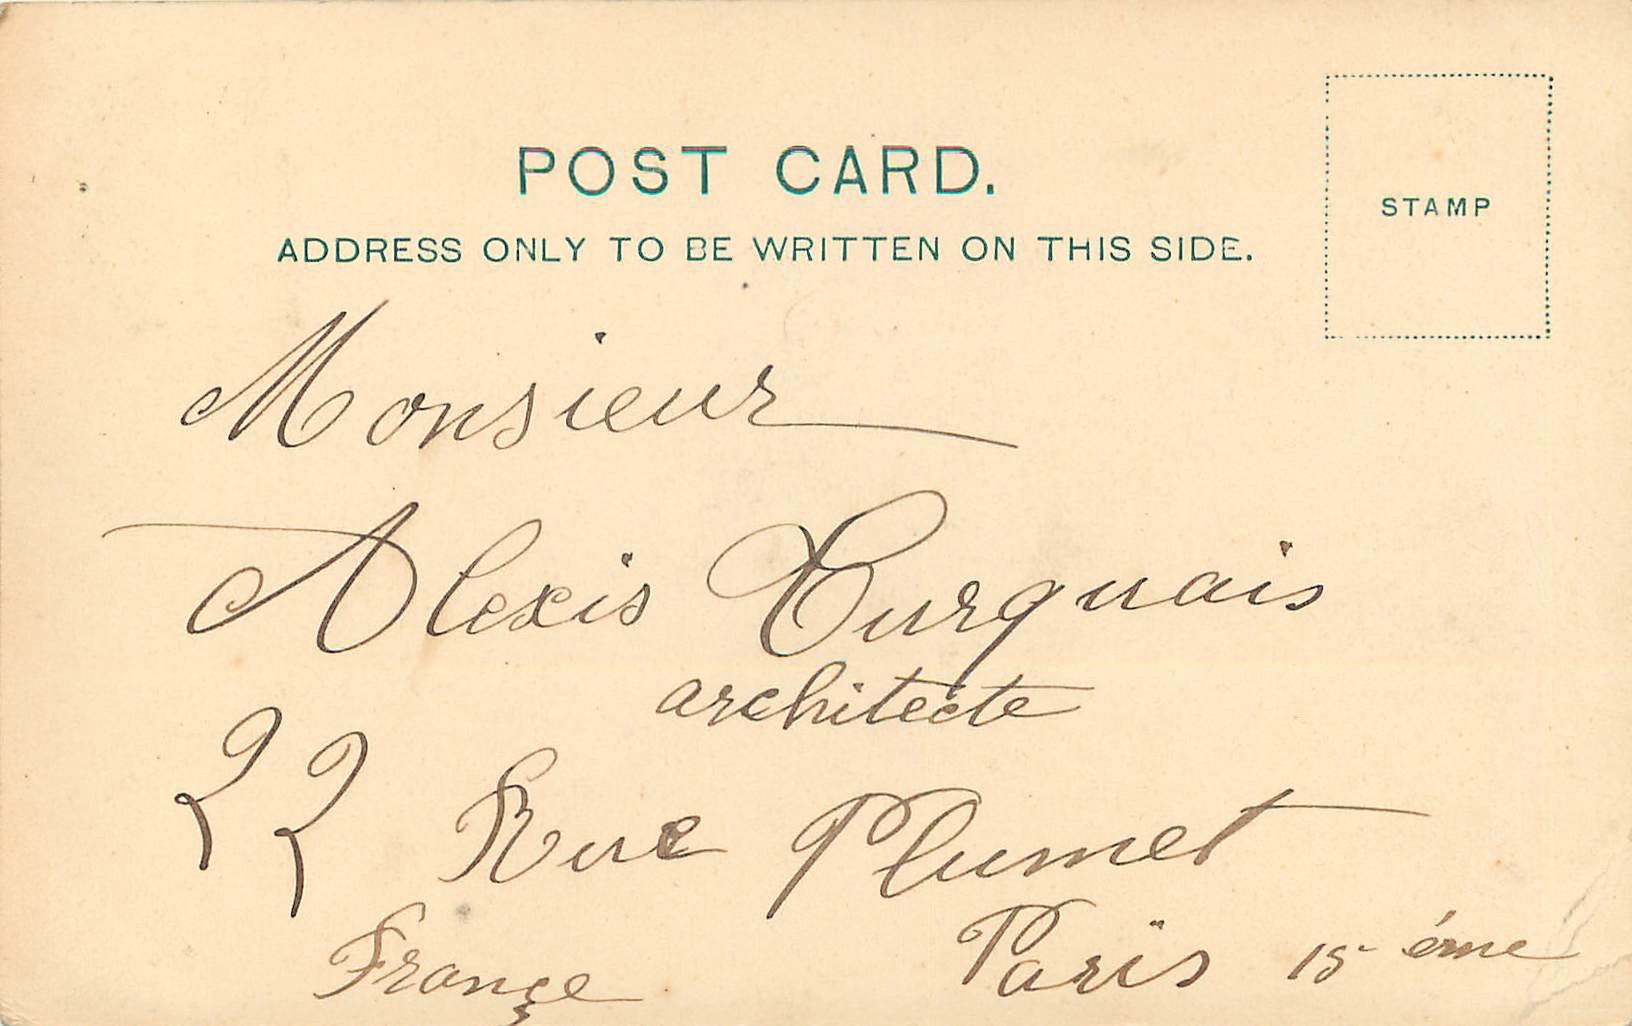 POST CARD.
STAMP
ADDRESS ONLY TO BE WRITTEN ON THIS SIDE.
Monsieur
Alexis Turquais
architecte
22 Rue Plumet
Paris 15 ème
Françe